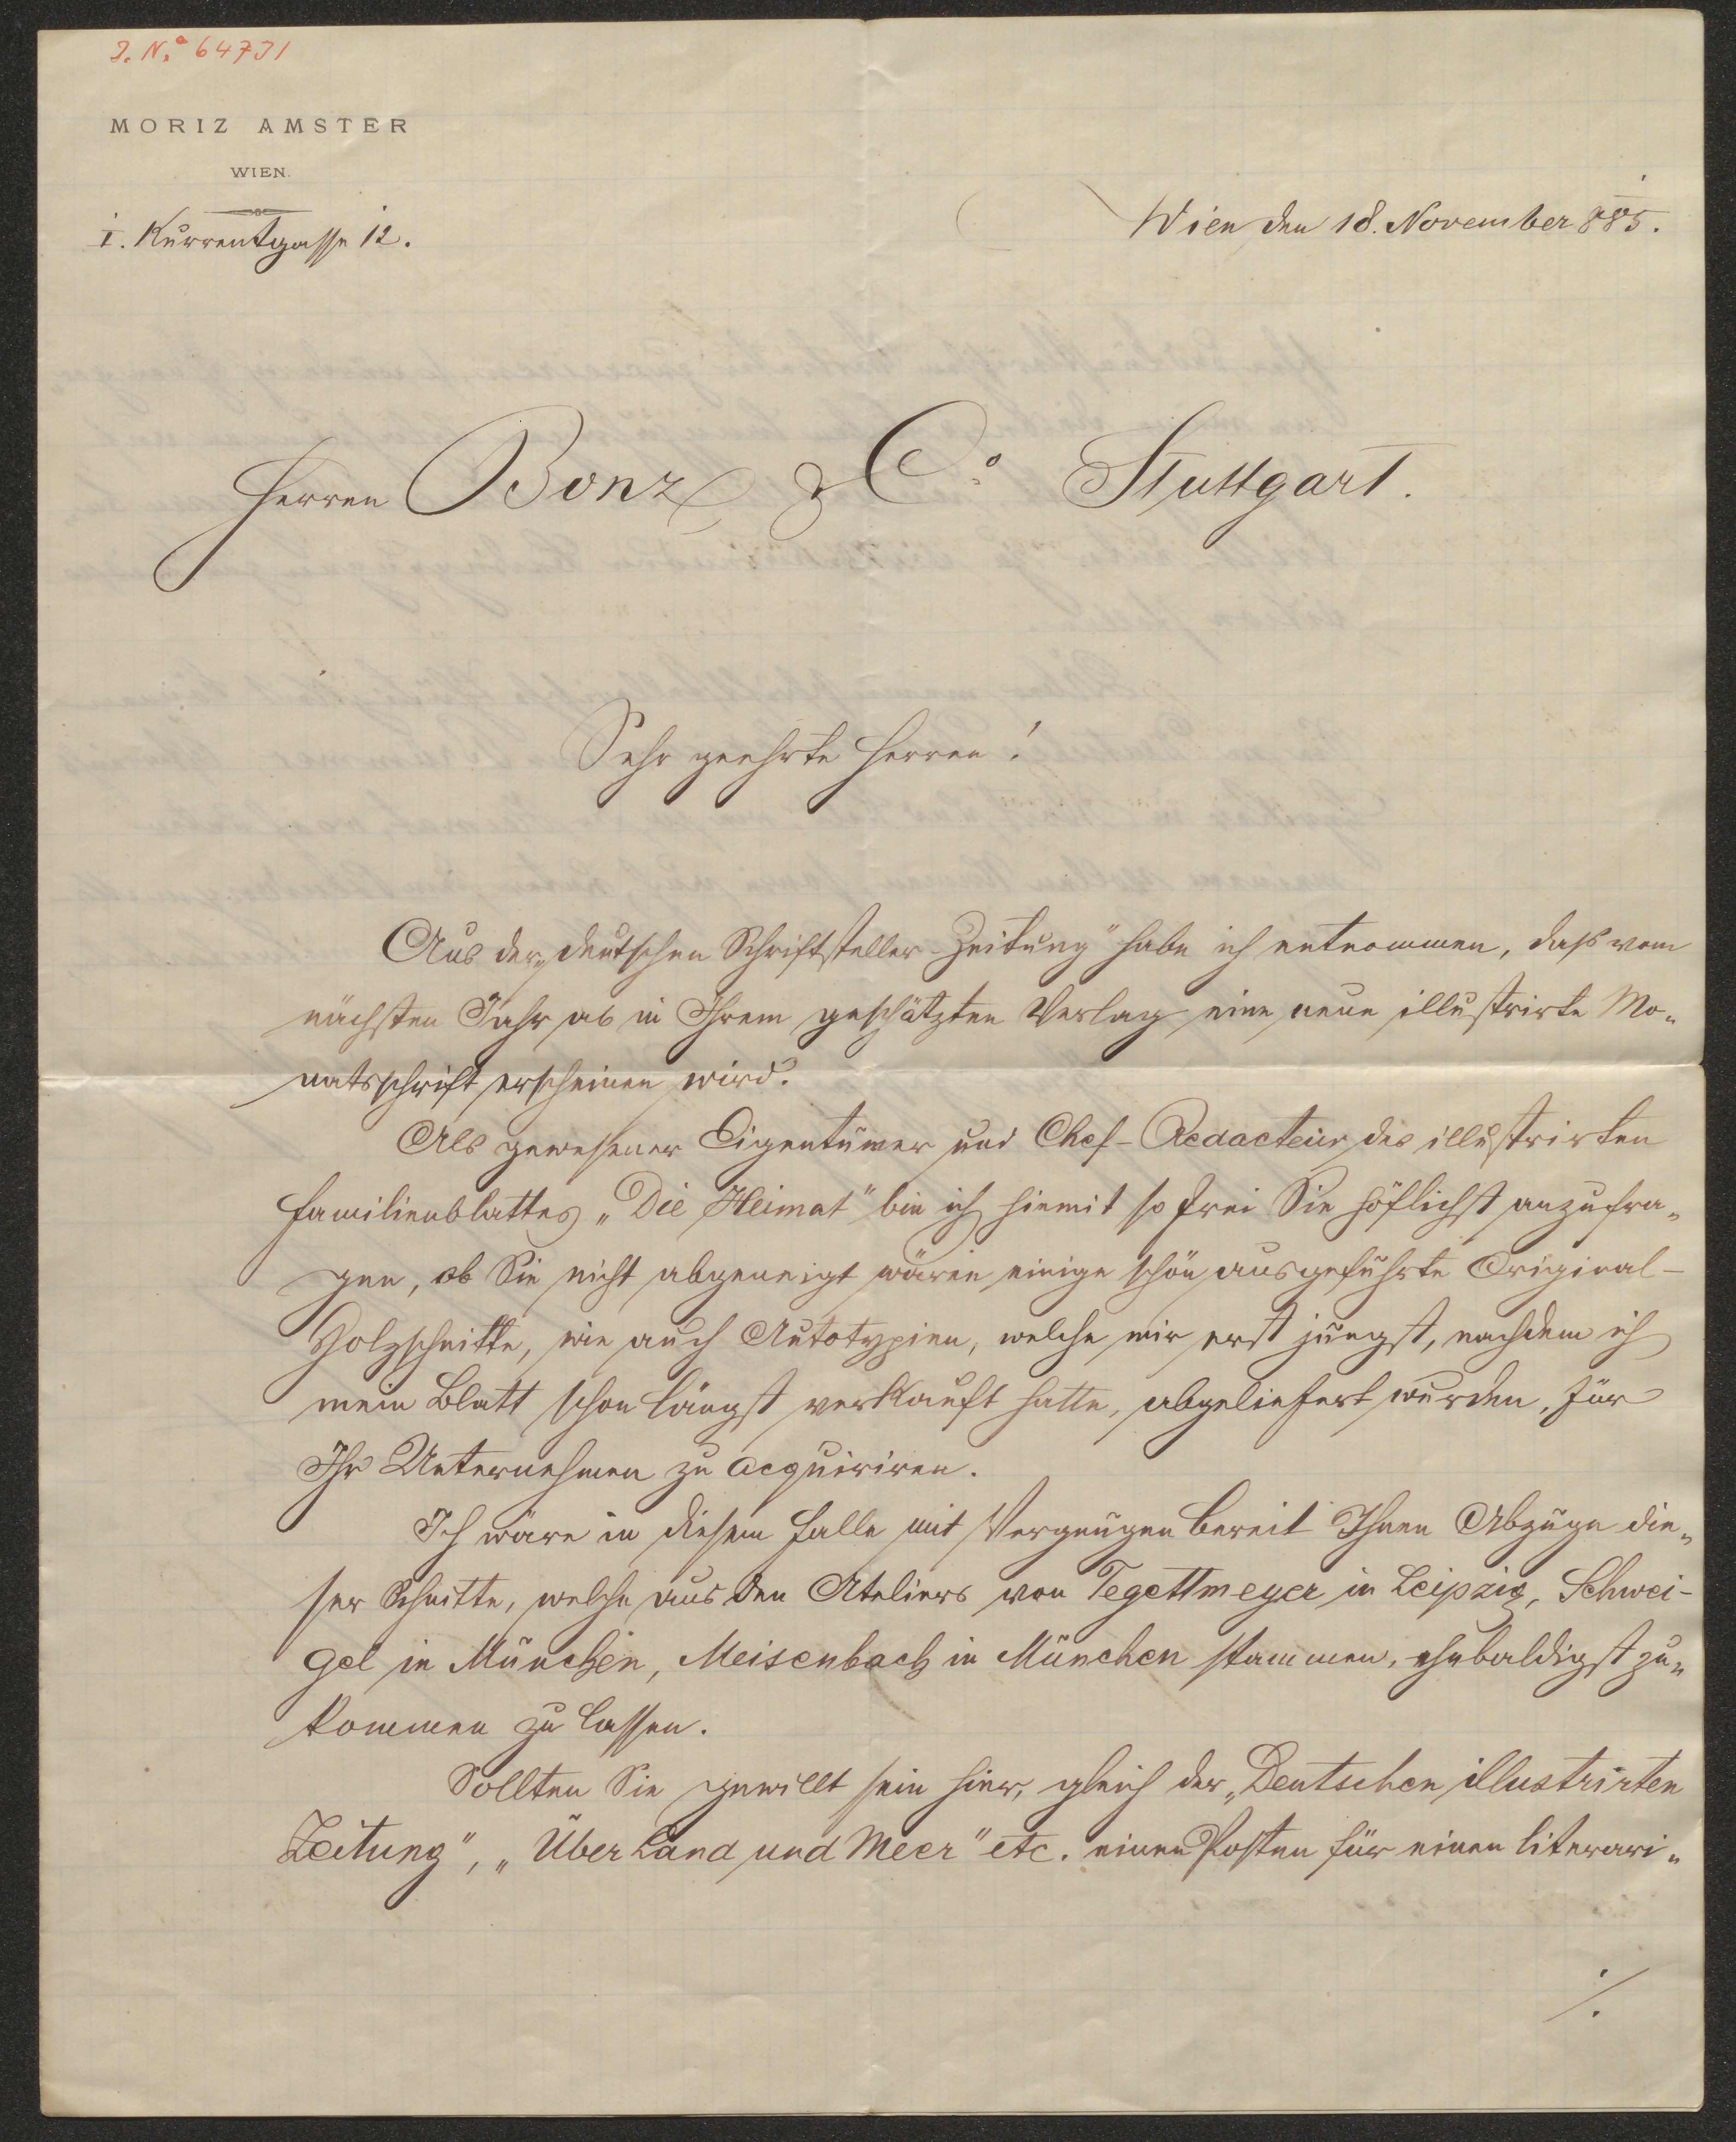 I. N.° 64731
MORIZ AMSTER
WIEN.
I. Kurrentgasse 12.
Wien den 18. November 885.
Herren Bonz & Co. Stuttgart.
Sehr geehrte Herren!
Aus der „deutschen Schriftsteller-Zeitung" habe ich entnommen, daß vom
nächsten Jahr ab in Ihrem geschätzten Verlag eine neue illustrirte Mo„
natsschrift erscheinen wird.
Als gewesener Eigentümer und Chef-Redacteur des illustrirten
Familienblattes „Die Heimat" bin ich hiemit so frei Sie höflichst anzufra„
gen, ob Sie nicht abgeneigt wären einige schön ausgeführte Original-
Holzschnitte, wie auch Autotypien, welche mir erst jüngst, nachdem ich
mein Blatt schon längst verkauft hatte, abgeliefert wurden, für
Ihr Unternehmen zu acquiriren.
Ich wäre in diesem Falle mit Vergnügen bereit Ihnen Abzüge die„
ser Schnitte, welche aus den Ateliers von Tegettmeyer in Leipzig, Schwei-
gel in München, Meisenbach in München stammen, ehebaldigst zu„
kommen zu lassen.
Sollten Sie gewillt sein hier, gleich der „Deutschen illustrirten
Zeitung", „Über Land und Meer" etc. einen Posten für einen literari„
./.